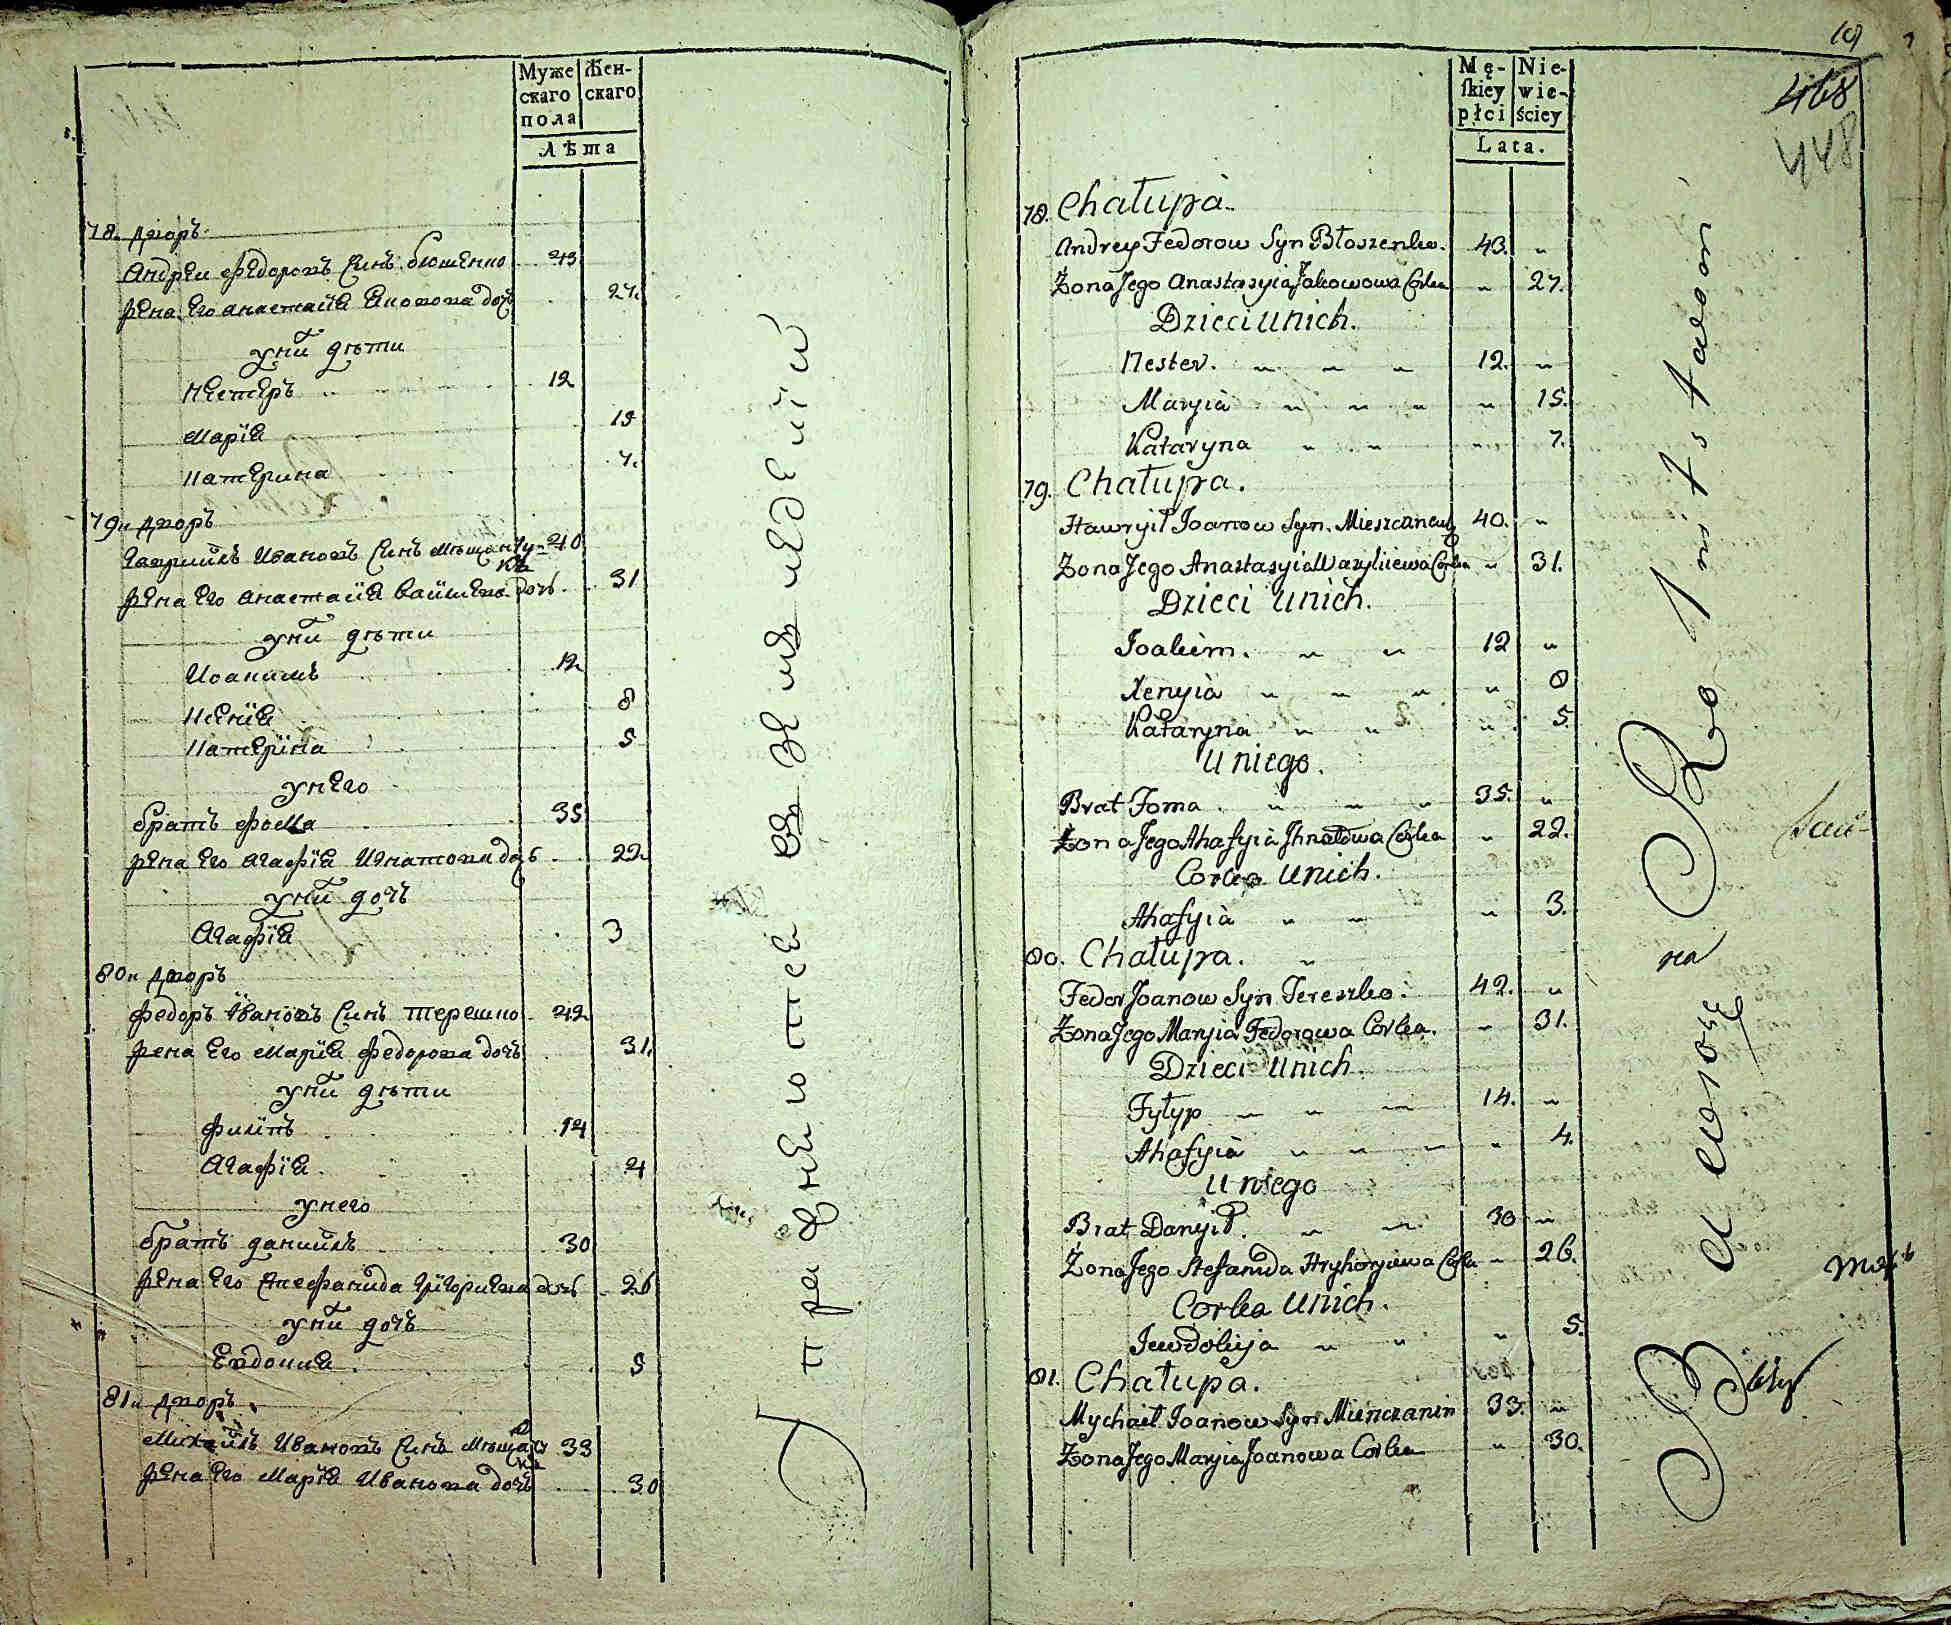 Муже
скаго
пола
Жен-
скаго
Лѣта
78. дворъ
Андреи Федоровъ Синъ блошенко 43
жена Его анастасїя Яковова дочъ 27.
унй дѣти
нестеръ 12
марїя 15
катерина 7.
79и дворъ
Гаврийлъ Ивановъ Синъ мѣщан 40
жена Его анастасїя василева дочъ 31
унй дѣти
Иоакимъ 12
ксенїя 8
катерїна 5
унего
братъ фома 35
жена Его агафїя Игнатова дочъ 22.
унй дочъ
Агафїя 3
80и дворъ
федоръ Ивановъ Синъ терешко 42
жена Его марїя федорова дочъ 31.
унй дѣти
филїпъ 14
Агафїя 4
унего
братъ данийлъ 30
жена Его Стефанида Григориева дочъ 26
унй дочъ
Евдокия 5
81и дворъ
михайлъ Ивановъ Синъ 33
жена Его марїя Иванова дочъ 30
468
448
Mę-
ſkiey
płci
Nie-
wie-
ściey
Lata.
78. Chałupa
Andrey Fedorow Syn Błoszenko. 43. "
Żona Jego Anastasyia Jakowowa Corka " 27.
Dzieci unich.
Nester. " " " 12. "
Maryia " " " " 15.
Kataryna " " " 7.
79. Chałupa.
Hawryił Joanow Syn Mieszczaneu 40. "
Żona Jego Anastasyia Wasyliiewa Corka " 31.
Dzieci unich.
Joakim. " " 12 "
Xenyia " " " " 8
Kataryna " " " 5.
u niego.
Brat Foma. " " " 35. "
Żona Jego Ahafyia Jhnatowa Corka " 22.
Corka unich.
Ahafyia " " " 3.
80. Chałupa. "
Fedor Joanow Syn Tereszko. 42. "
Żona Jego Maryia Fedorowa Corka. " 31.
Dzieci unich.
Fyłyp " " " 14. "
Ahafyia " " " " 4.
u niego
Brat Danyił. " " 30 "
Żona Jego Stefanida Hryhoryiewa Corka " 26.
Corka unich.
Jewdokija " " " 5.
81. Chałupa.
Mychaił Joanow Syn Mienczanin 33. "
Żona Jego Maryia Joanowa Corka " 30.